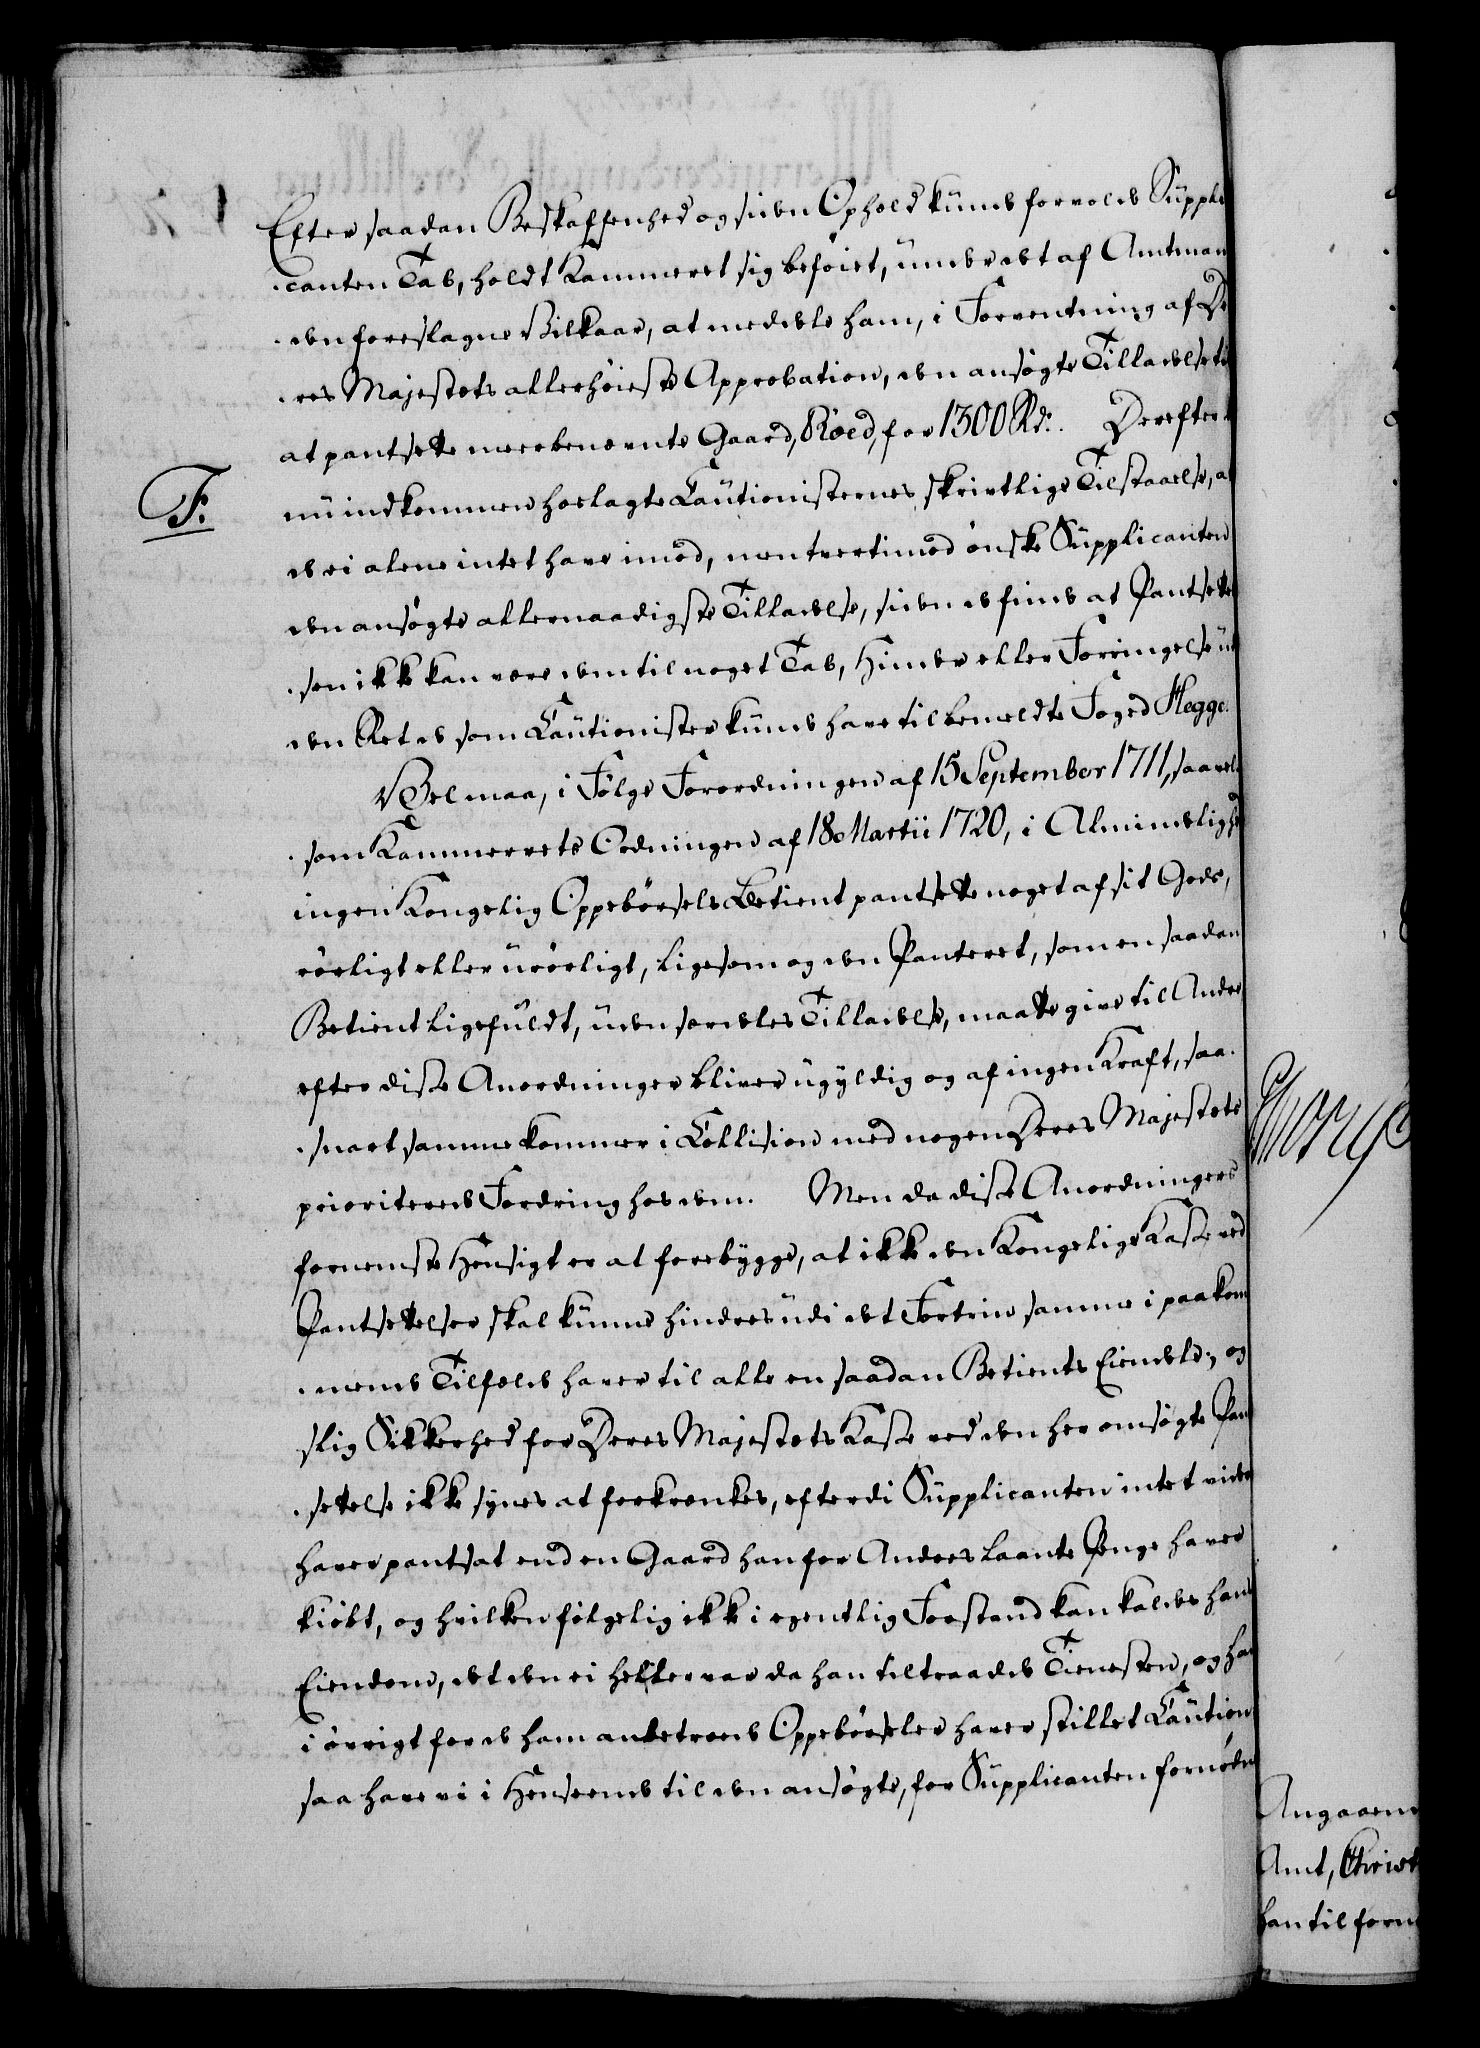 Efter saadan Beskaffenhed og siden Ophold kunde forvolde Suppli
canten Tab, holdt Kammeret sig beføiet, under det af Amtman
den foreslagne Vilkaar, at meddele ham, i Forventning af De
res Majestets allerhøieste Approbation, den ansøgte Tilladelse til
at pantsette meerbenevnte Gaard, Røed, for 1300 Rdr. Derefter
F.
nu indkommen hoslagte Cautionisternes skrivtlige Tilstaaelse, at
de ei alene intet have imod, men tvertimod ønske Supplicanten
den ansøgte allernaadigste Tilladelse, siden de finde at Pantsettel
sen ikke kan være dem til noget Tab, Hinder eller Forringelse ud
den Ret de som Cautionister kunde have til bemeldte Foged Flegge.
Vel maa, i Følge Forordningen af 15 September 1711, saavel
som Kammerrets Ordningen af 18 Martii 1720, i Almindelighed
ingen Kongelig Oppebørsels Betient pantsette noget af sit Gods,
rørligt eller urørligt, ligesom og den Panteret, som en saadan
Betient ligefuldt, uden særdeles Tilladelse, maatte give til Andre
efter disse Anordninger bliver ugyldig og af ingen Kraft, saa
snart samme kommer i Collision med nogen Deres Majestets
prioriterede Fordring hos dem. Men da disse Anordningers
fornemste Hensigt er at forebygge, at ikke den Kongelige Kasse ved
Pantsettelser skal kunne hindres udi det Fortrin samme i paakom
mende Tilfælde haver til alle en saadan Betients Eiendele, og
slig Sikkerhed for Deres Majestets Kasse ved den her omsøgte Pan
settelse ikke synes at forkrænkes, efterdi Supplicanten intet videre
haver pantsat end en Gaard han for Andres laante Penge haver
kiøbt, og hvilken følgelig ikke i egentlig Forstand kan kaldes hans
Eiendom, det den ei heller var da han tiltraadde Tienesten, og han
i øvrigt for de ham anbetroede Oppebørseler haver stillet Caution
saa have vi i Henseende til den ansøgte, for Supplicanten fornøden
Angaaende
Amt, Christ
han til forn